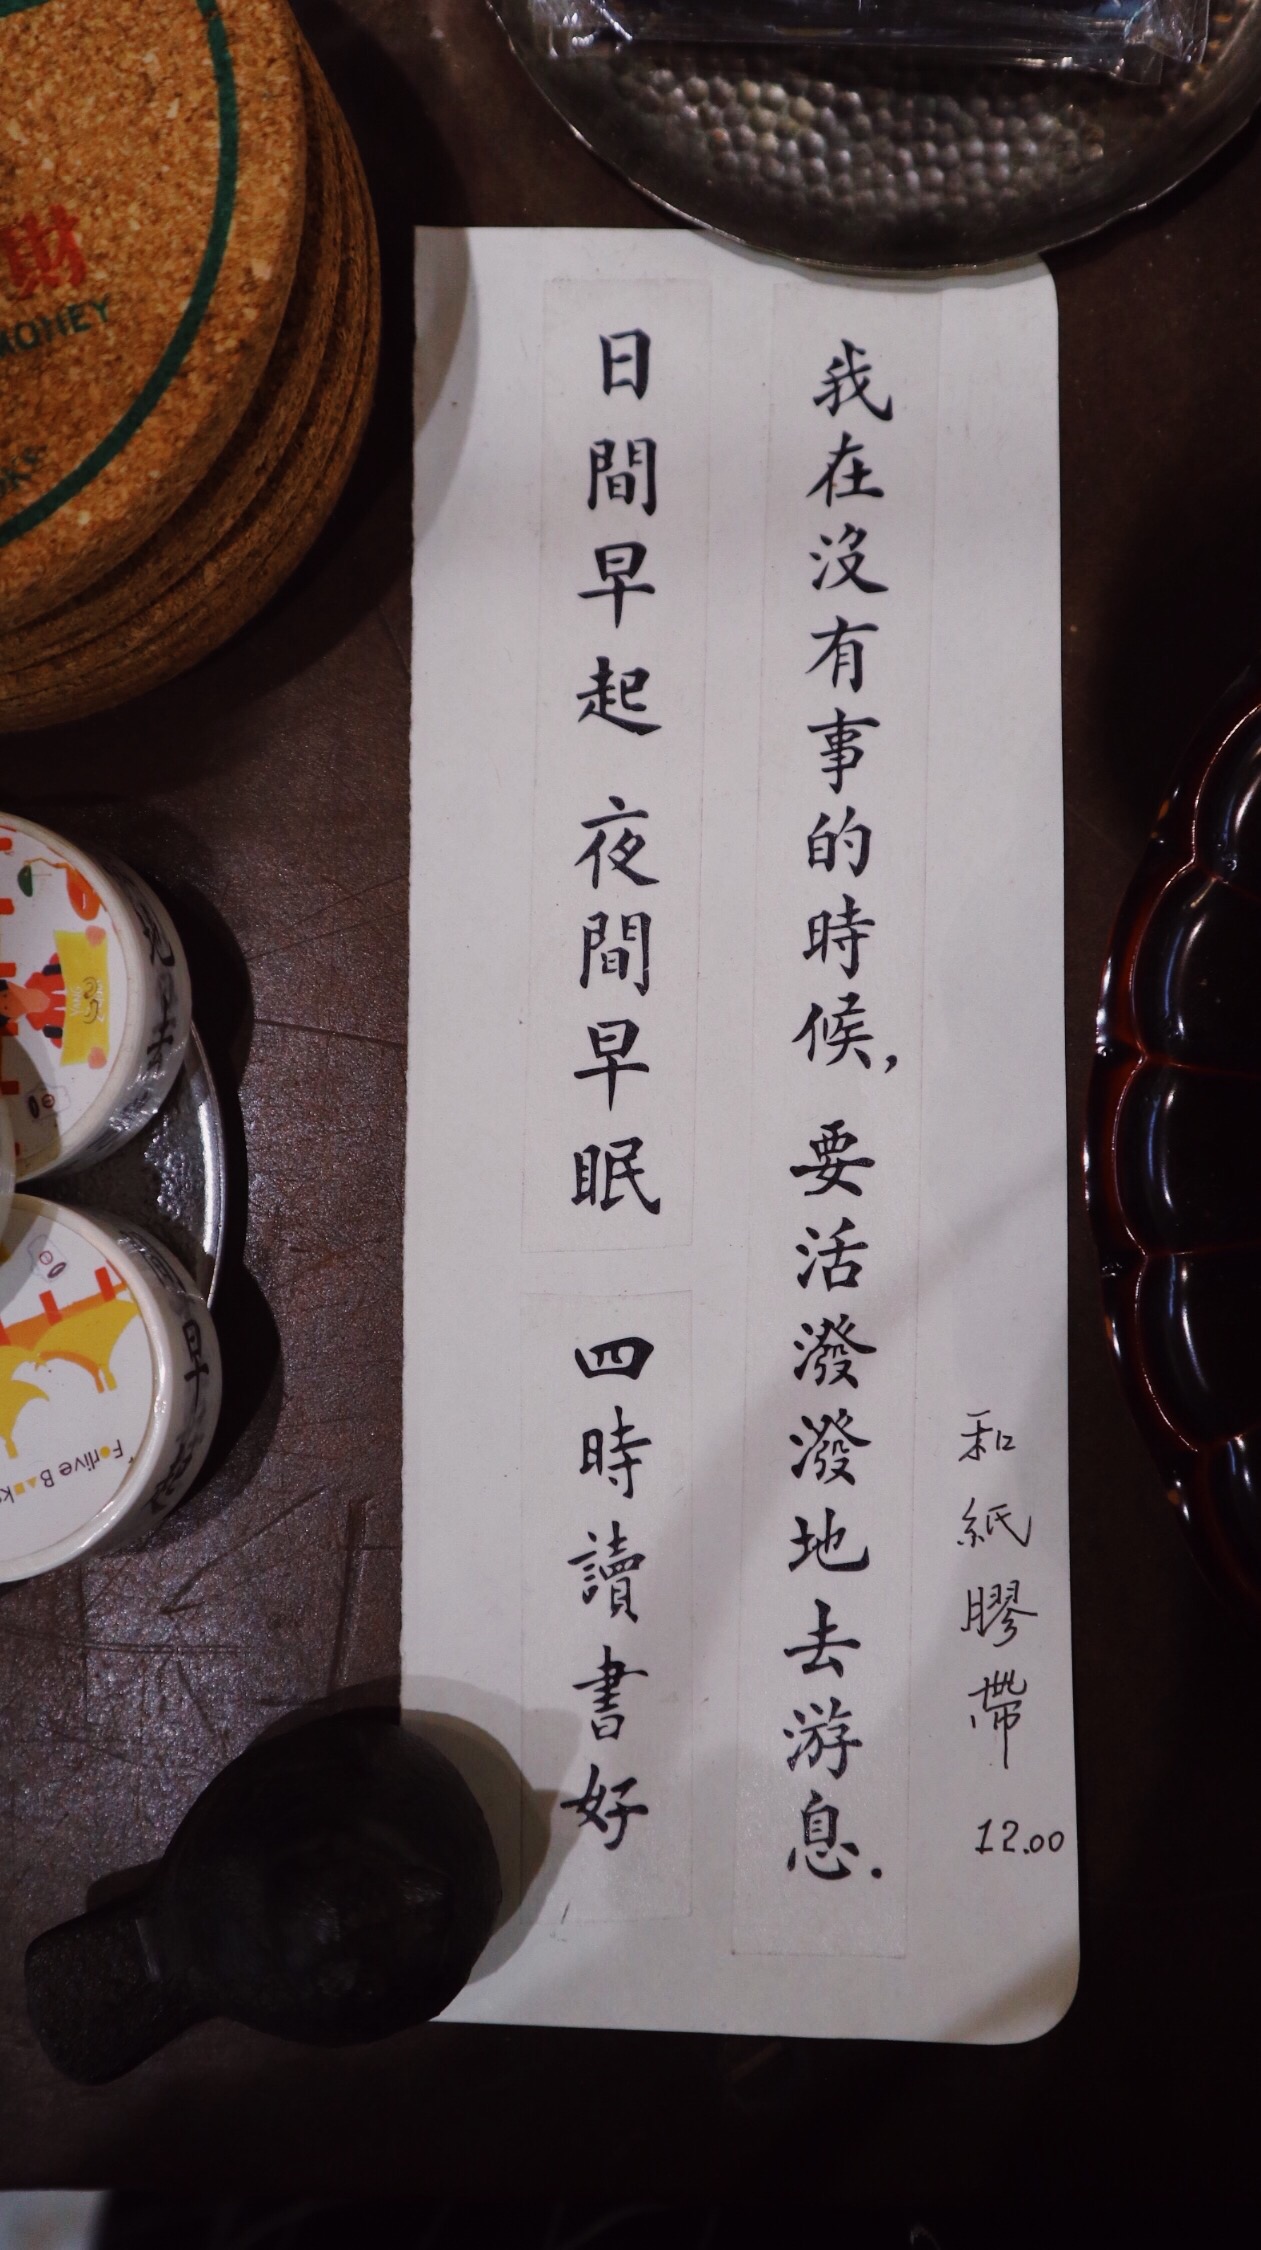 和紙膠帶
12.00
我在沒有事的時候，要活潑潑地去游息.
日間早起 夜間早眠 四時讀書好
財
MONEY
"Forlive Books
早